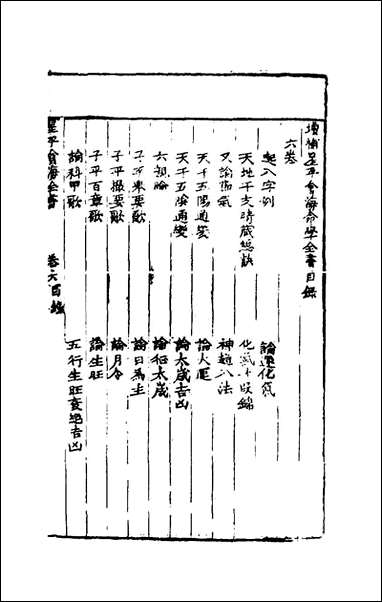 增補星平會海命學全書目錄
六卷
起八字例 論運化氣
天地干支暗藏總訣 化氣十段錦
又論陽氣 神趣八法
天干五陽通變 論大運
天干五陰通變 論太歲吉凶
六親論 論征太歲
子平舉要歌 論日為主
子平撮要歌 論月令
子平百章歌 論生旺
論科甲歌 五行生旺衰絕吉凶
星平會海全書 卷六目錄